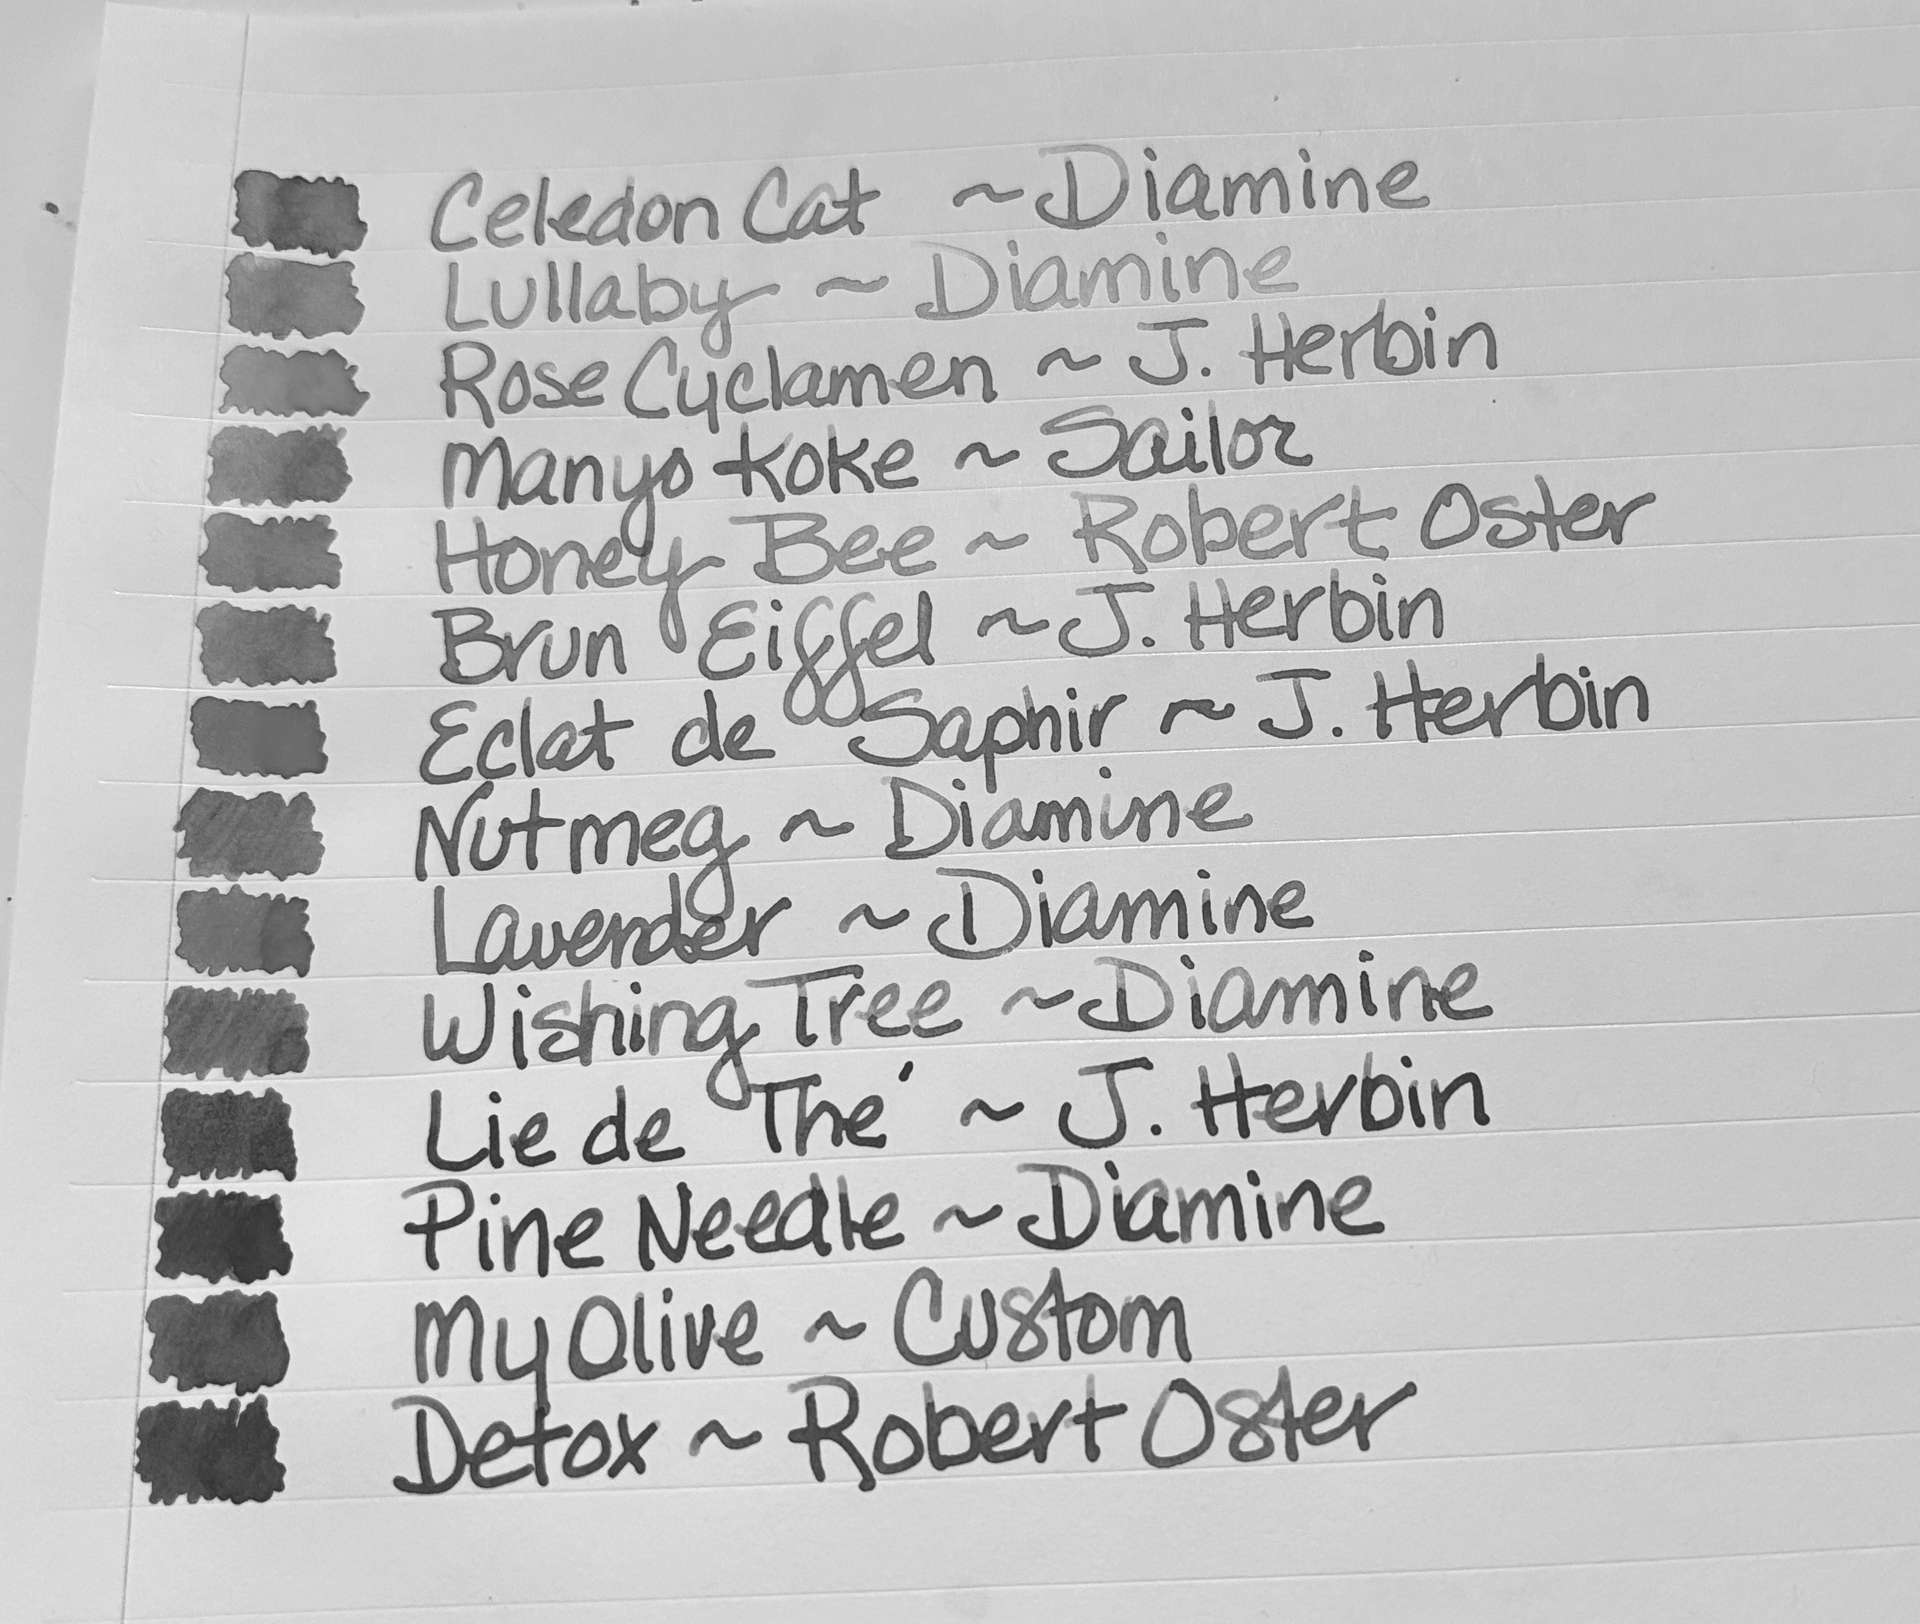 Celedon Cat ~ Diamine
Lullaby ~ Diamine
Rose Cyclamen ~ J. Herbin
Manyo Koke ~ Sailor
Honey Bee ~ Robert Oster
Brun Eiffel ~ J. Herbin
Eclat de Saphir ~ J. Herbin
Nutmeg ~ Diamine
Lavender ~ Diamine
Wishing Tree ~ Diamine
Lie de Thé ~ J. Herbin
Pine Needle ~ Diamine
My Olive ~ Custom
Detox ~ Robert Oster